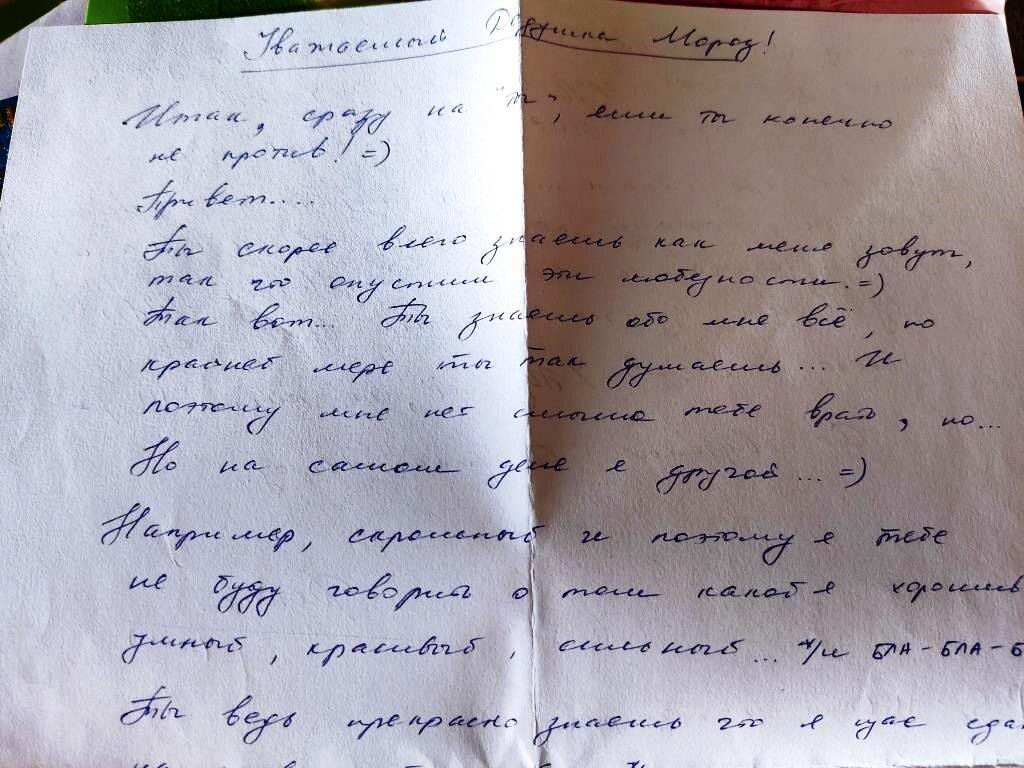 Уважаемый Дедушка Мороз!
Итак, сразу на "ты", если ты конечно
не против! =)
Привет....
Ты скорее всего знаешь как меня зовут,
так что опустим эти любезности. =)
Так вот... Ты знаешь обо мне всё, по
крайней мере ты так думаешь... И
поэтому мне нет смысла тебе врать, но...
Но на самом деле я другой... =)
Например, скромный и поэтому я тебе
не буду говорить о том какой я хороший
умный, красивый, сильный... и БЛА-БЛА-Б
Ты ведь прекрасно знаешь что я щас